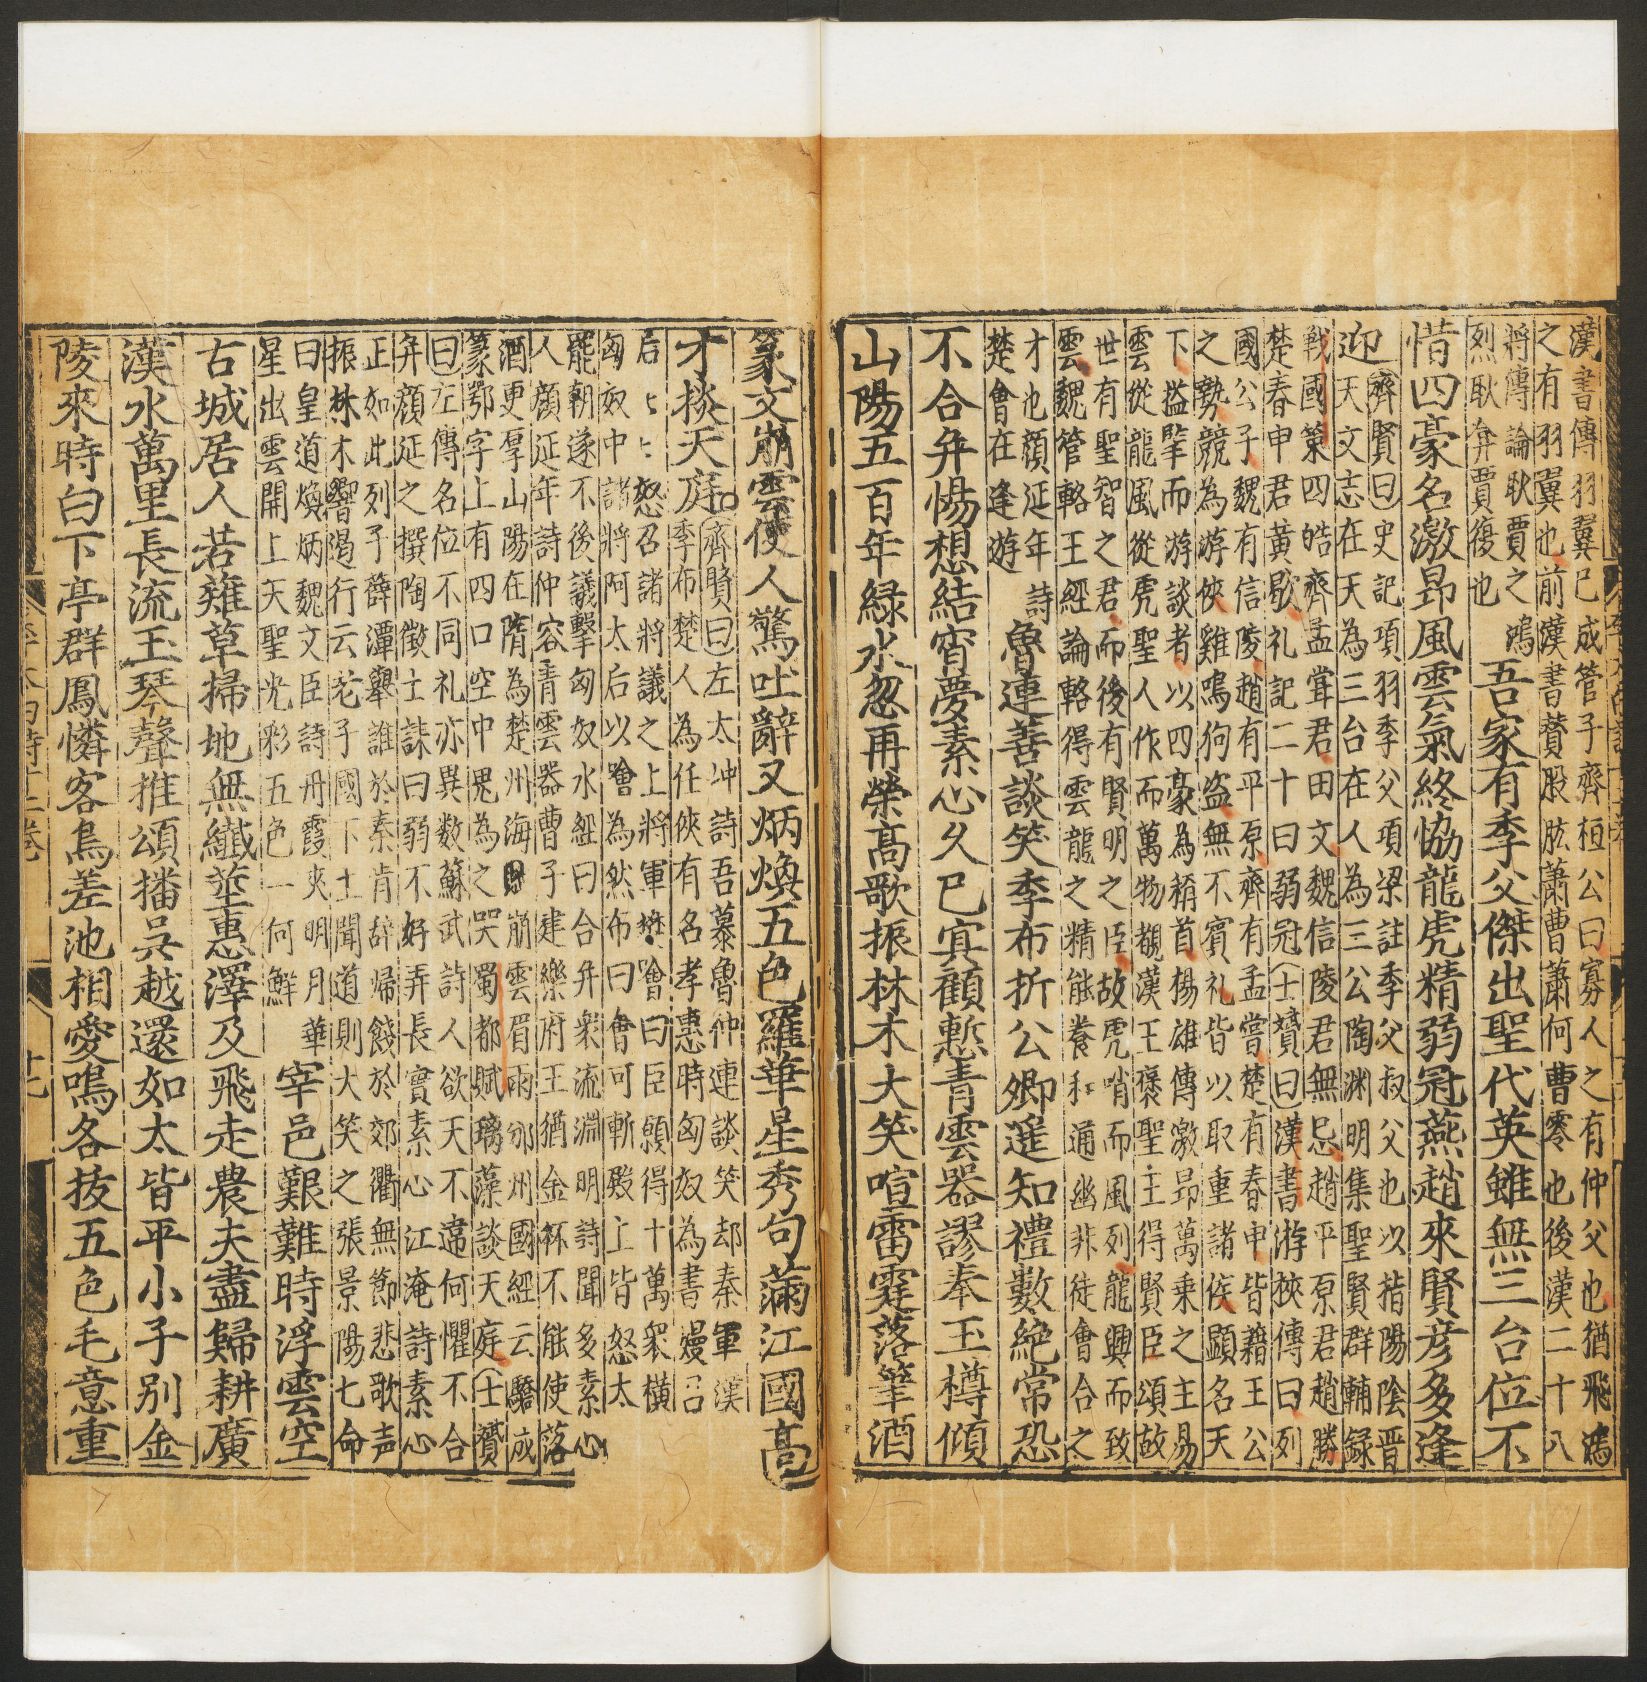 漢書傳羽翼已成管子齊桓公曰寡人之有仲父也猶飛鴻
之有羽翼也前漢書贊股肱蕭曹蕭何曹參也後漢二十八
將傳論耿賈之鴻
烈耿弇賈復也
吾家有季父傑出聖代英雖無三台位不
惜四豪名激昂風雲氣終協龍虎精弱冠燕趙來賢彥多逢
迎
齊賢曰史記項羽季父項梁註季父叔父也以指陽陰晉
天文志在天為三台在人為三公陶淵明集聖賢群輔錄
戰國策四皓齊孟嘗君田文魏信陵君無忌趙平原君趙勝
楚春申君黃歇礼記二十曰弱冠士贇曰漢書游俠傳曰列
國公子魏有信陵趙有平原齊有孟嘗楚有春申皆藉王公
之勢競為游俠雞鳴狗盜無不賓礼皆以取重諸侯顯名天
下搤掔而游談者以四豪為稱首揚雄傳激昂萬乗之主易
雲從龍風從虎聖人作而萬物覩漢王褒聖主得賢臣頌故
世有聖智之君而後有賢明之臣故虎嘯而風列龍興而致
雲魏管輅王經論輅得雲龍之精能養和通幽非徒會合之
才也顏延年詩
楚會在逢游
魯連善談笑季布折公卿遥知禮數絶常恐
不合并惕想結宵夢素心久已冥顧慙青雲器謬奉玉樽傾
山陽五百年緑水忽再榮高歌振林木大笑喧雷霆落筆洒
篆文崩雲使人驚吐辭又炳煥五色羅華星秀句滿江國高
才掞天庭
齊賢曰左太冲詩吾慕魯仲連談笑却秦軍漢
季布楚人為任俠有名孝惠時匈奴為書嫚吕
后后怒召諸將議之上將軍樊噲曰臣願得十萬衆横
匈奴中諸將阿太后以噲為然布曰噲可斬殿上皆怒太
罷朝遂不後議擊匈奴水經曰合弁衆流淵明詩聞多素心
人顏延年詩仲容青雲器曹子建樂府王猶金杯不能使落
酒更厚山陽在隋為楚州海崩雲眉雨邠州國經云驕成
篆鄂字上有四口空中晃為之哭蜀都賦璃藻談天庭士贇
曰左傳名位不同礼亦異数蘇武詩人欲天不違何懼不合
弁顔延之撰陶徵士誄曰弱不好弄長實素心江淹詩素心
正如此列子薛潭舉誰於秦肯辞歸餞於郊衢無節悲歌声
振林木響遏行云老子國下士聞道則大笑之張景陽七命
曰皇道煥炳魏文臣詩丹霞夾明月華
星出雲開上天聖光彩五色一何鮮
宰邑艱難時浮雲空
古城居人若薙草掃地無纖莖惠澤及飛走農夫盡歸耕廣
漢水萬里長流玉琴聲推頌播吳越還如太皆平小子别金
陵來時白下亭群鳳憐客鳥差池相愛鳴各抜五色毛意重